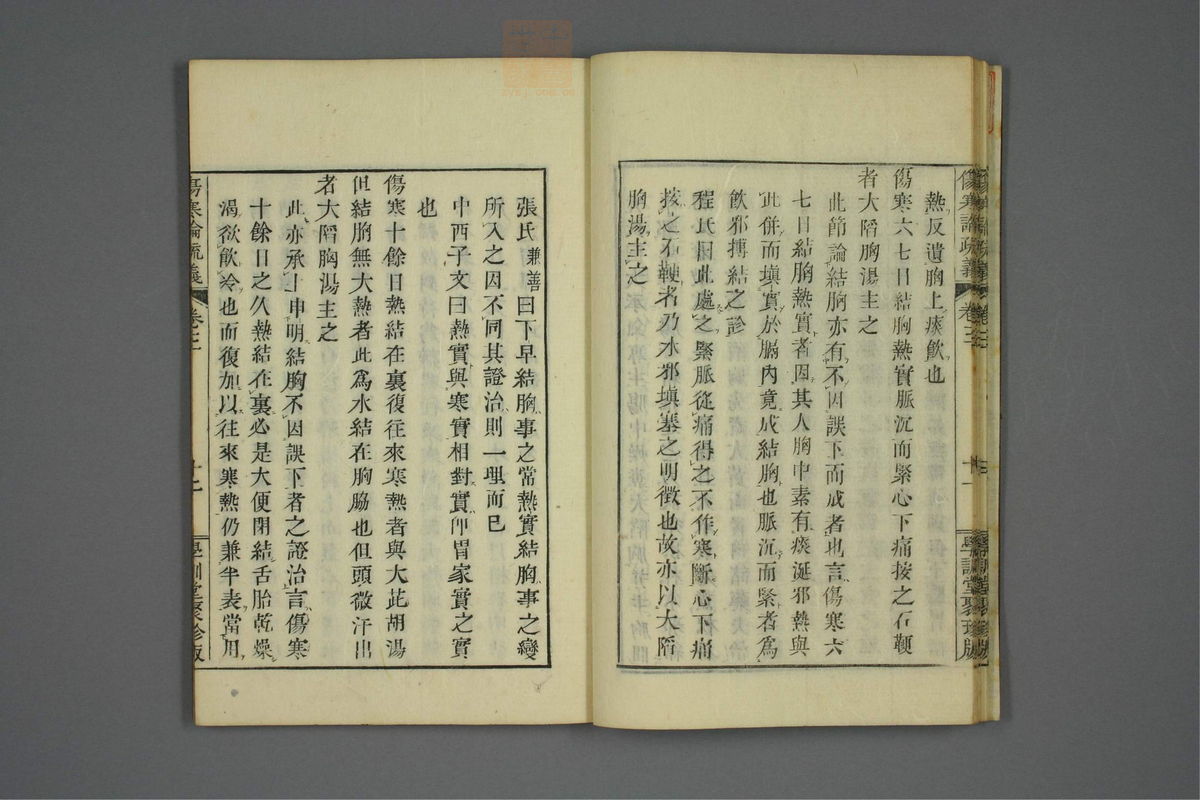 傷寒論疏義
卷三
十一
學訓堂聚珍版
熱反遺胸上痰飲也
傷寒六七日結胸熱實脈沉而緊心下痛按之石鞕
者大陷胸湯主之
此節論結胸亦有不因誤下而成者也言傷寒六
七日結胸熱實者因其人胸中素有痰涎邪熱與
此併而塡實於膈內竟成結胸也脈沉而緊者爲
飮邪搏結之診
程氏曰此處之緊脈從痛得之不作寒斷心下痛
按之石鞕者乃水邪塡塞之明徵也故亦以大陷
胸湯主之
張氏兼善曰下早結胸事之常熱實結胸事之變
所入之因不同其證治則一理而已
中西子文曰熱實與寒實相對實卽胃家實之實
也
傷寒十餘日熱結在裏復往來寒熱者與大茈胡湯
但結胸無大熱者此爲水結在胸脇也但頭微汗出
者大陷胸湯主之
此亦承上申明結胸不因誤下者之證治言傷寒
十餘日之久熱結在裏必是大便閉結舌胎乾燥
渴欲飮冷也而復加以往來寒熱仍兼半表當用
傷寒論疏義
卷三
十二
學訓堂聚珍版